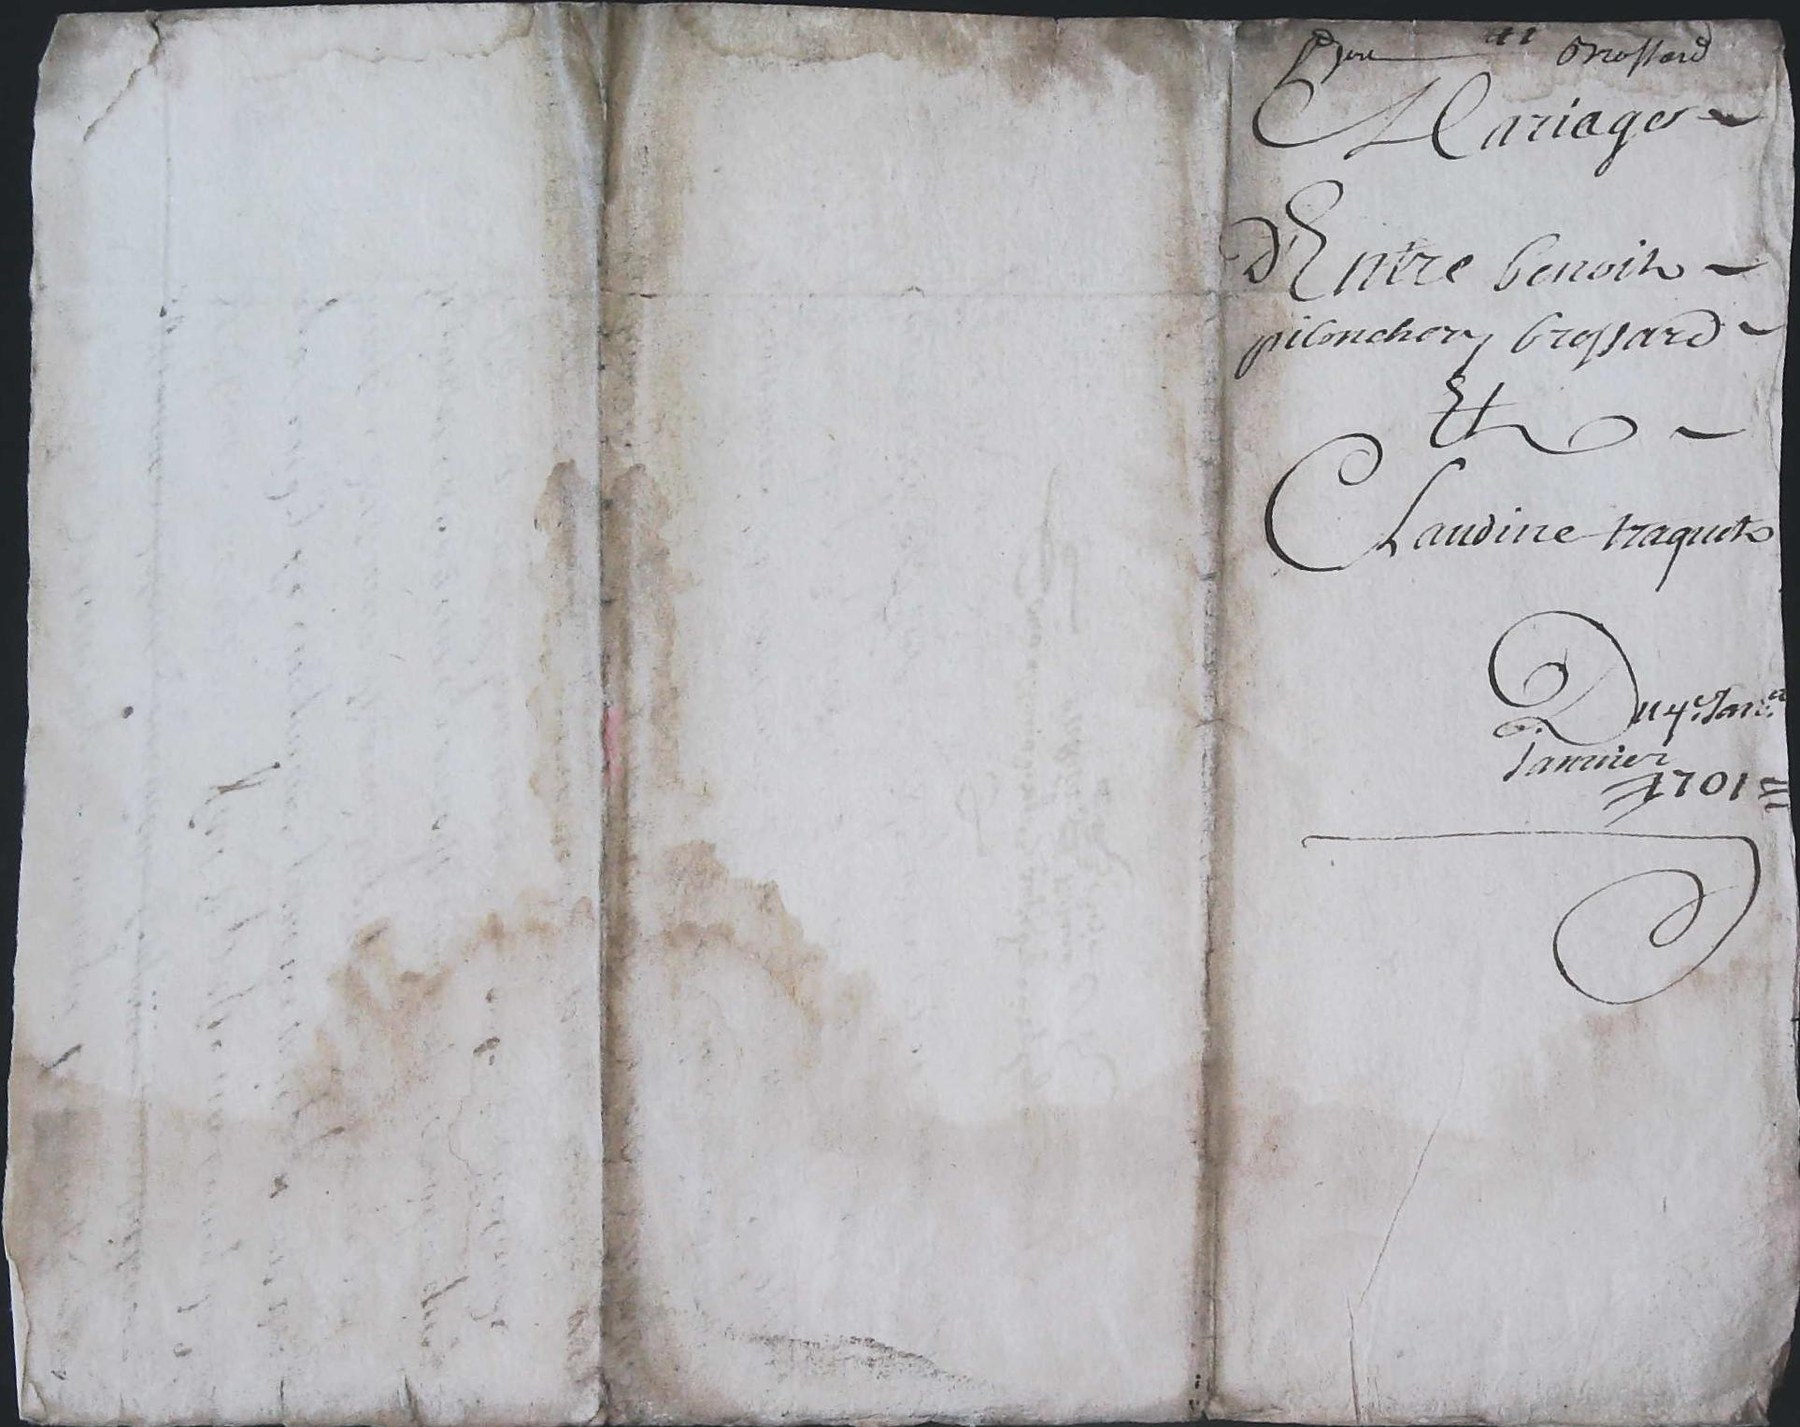 11 Brossard
Mariages
d'Entre benoit
pilonchery brossard
Et
Claudine traquet
Du 4e Janer
Januier
1701